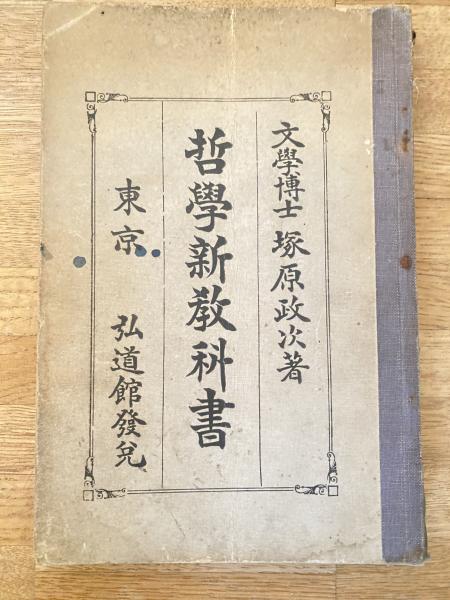 文學博士 塚原政次著
哲學新教科書
東京 弘道館發兌